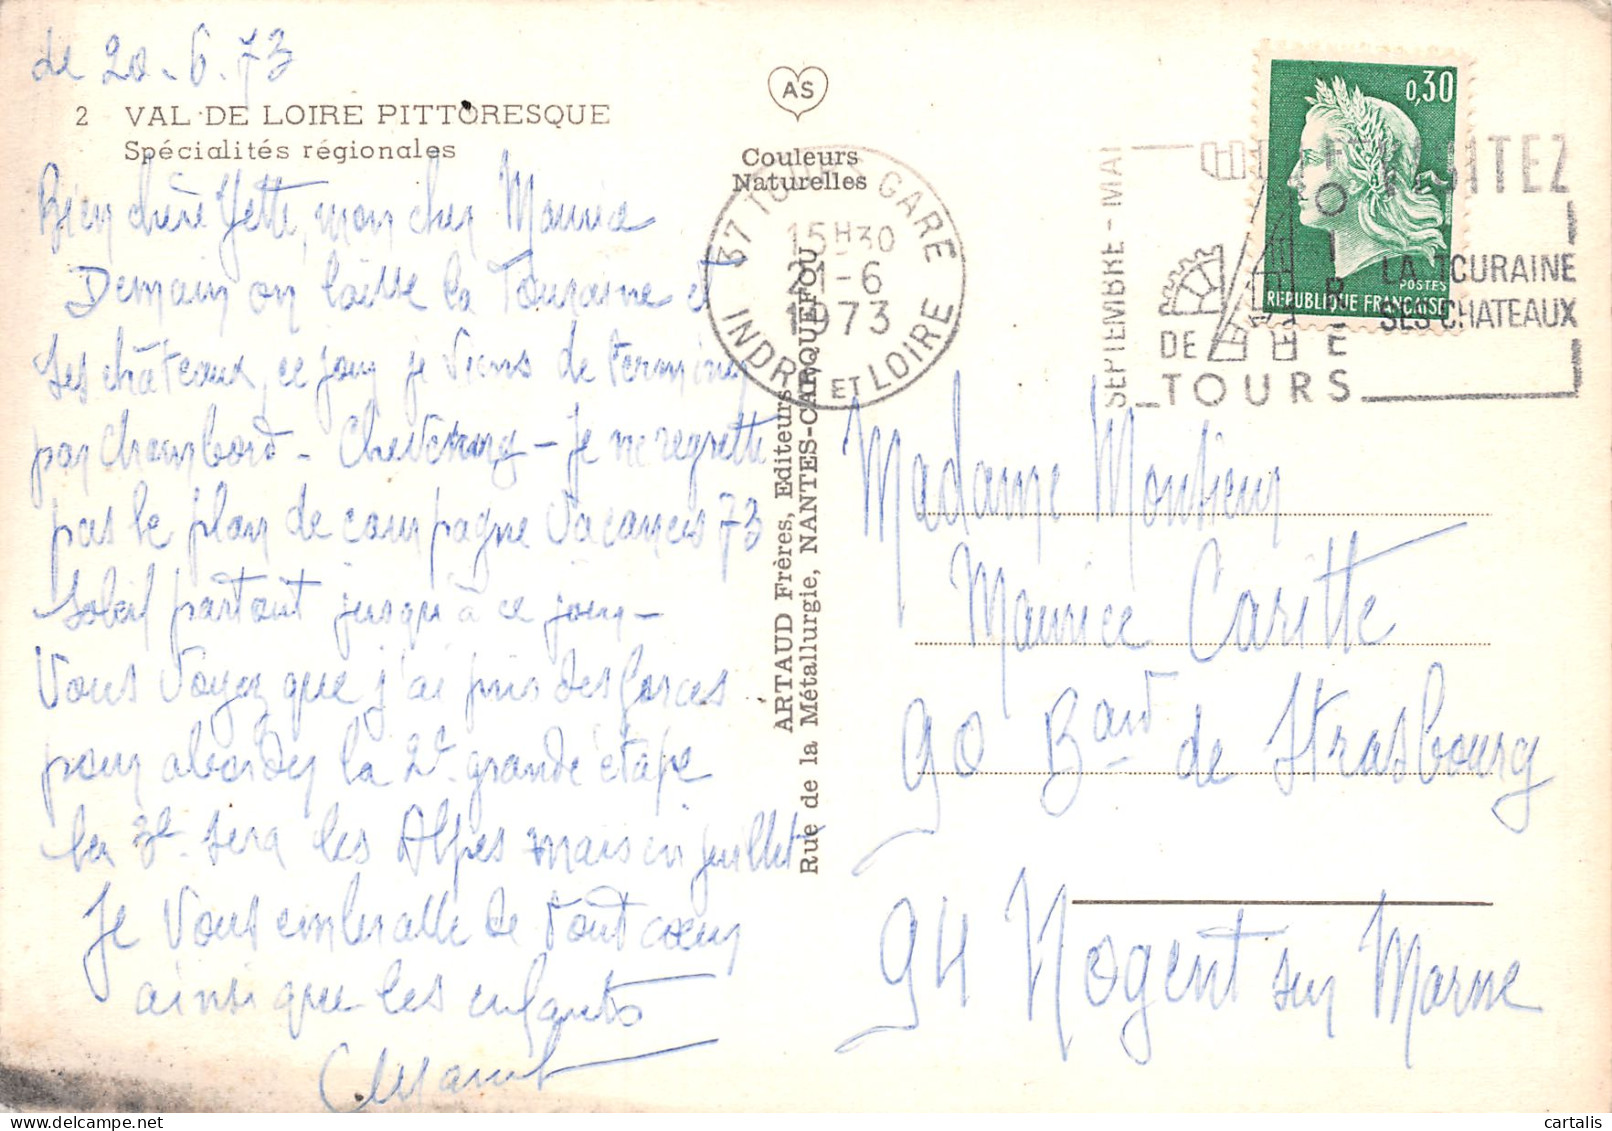 de 20-6.73
2 VAL DE LOIRE PITTORESQUE
Spécialités régionales
Bien chère Yette, mon cher Maurice
Demain on laisse la Touraine et
ses châteaux, ce jour je viens de terminer
par Chambord - Cheverny - Je ne regrette
pas le plan de campagne Vacances 73
Soleil partout jusqu'à ce jour -
Vous voyez que j'ai pris des forces
pour aborder la 2e grande étape
la 3e sera les Alpes mais en juillet
Je vous embrasse de tout cœur
ainsi que les enfants
AS
Couleurs
Naturelles
ARTAUD Frères, Editeurs
Rue de la Métallurgie, NANTES-CARQUEFOU
37 TOURS GARE
15H30
21-6
1973
INDRE ET LOIRE
SEPTEMBRE - MAI
FOIRE
DE
TOURS
VISITEZ
LA TOURAINE
SES CHATEAUX
0,30
POSTES
REPUBLIQUE FRANÇAISE
Madame Monsieur
Maurice Caritte
90 Bard de Strasbourg
94 Nogent sur Marne
cartalis